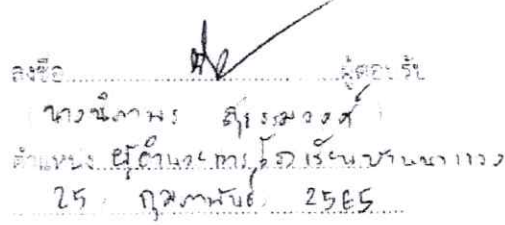 ลงชื่อ ผู้ตอบรับ
(นางนิภาพร สุธรรมวงศ์)
ตำแหน่ง ผู้อำนวยการโรงเรียนบ้านนาแวง
25 กุมภาพันธ์ 2565